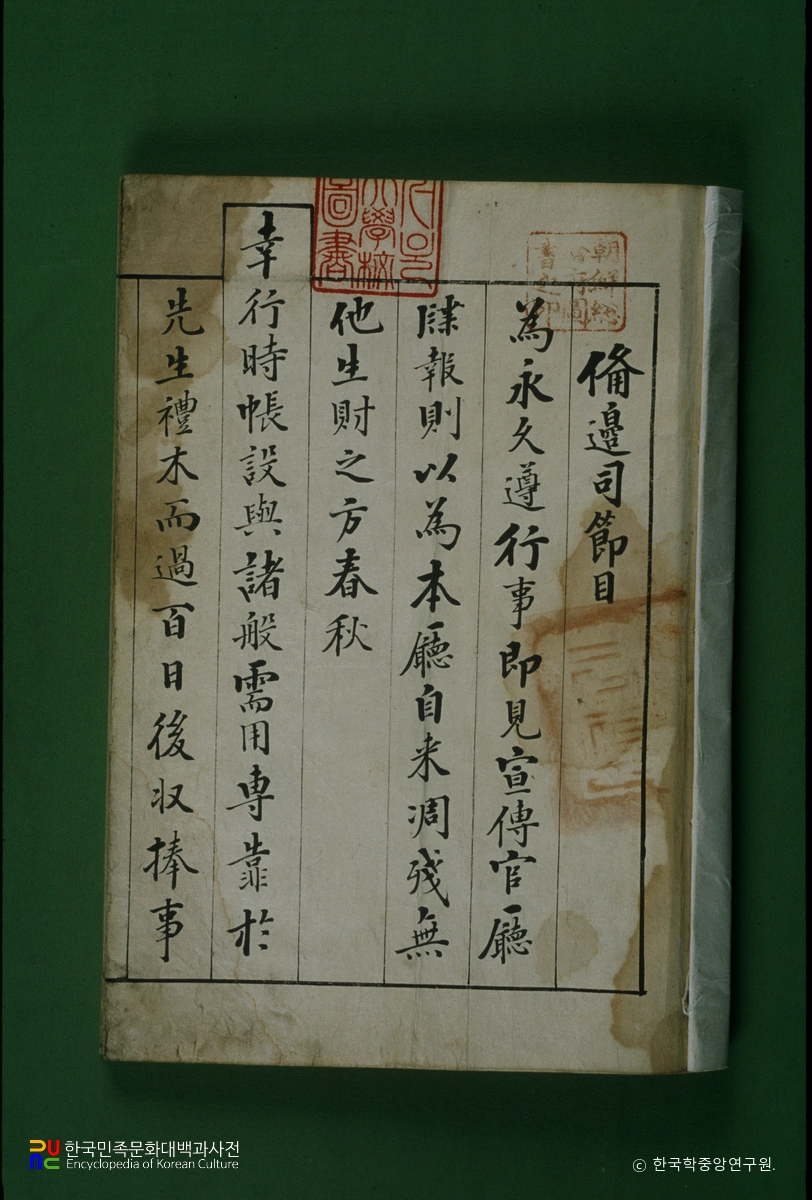 備邊司節目
為永久遵行事即見宣傳官廳
牒報則以為本廳自来凋残無
他生財之方春秋
幸
行時帳設與諸般需用専靠於
先生禮木而過百日後収捧事
朝鮮總
督府圖
書之印
大學校
圖書
한국민족문화대백과사전
Encyclopedia of Korean Culture
© 한국학중앙연구원.